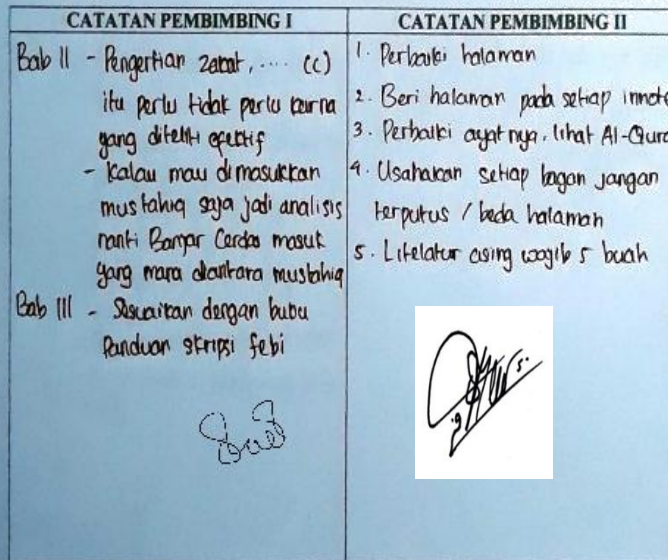 CATATAN PEMBIMBING I
Bab II - Pengertian zakat, .... (c)
itu perlu tidak perlu karna
yang diteliti efectif
- Kalau mau dimasukkan
mustahiq saja jadi analisis
nanti Banjar Cerdas masuk
yang mana diantara mustahiq
Bab III - Sesuaikan dengan buku
Panduan skripsi febi
CATATAN PEMBIMBING II
1. Perbaiki halaman
2. Beri halaman pada setiap innote
3. Perbaiki ayatnya, lihat Al-Qura
4. Usahakan setiap bagan jangan
terputus / beda halaman
5. Litelatur asing wajib 5 buah